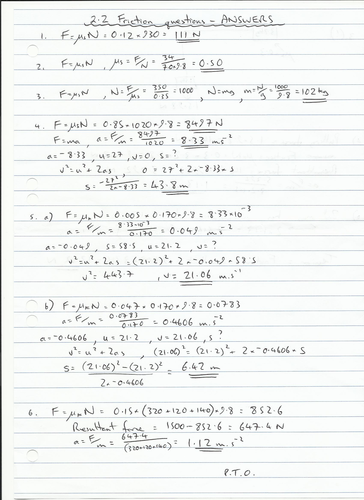 2.2 Friction questions - ANSWERS
1. F=μₛN = 0.12 × 930 = 111 N
2. F=μₛN , μs = F/N = 34/70×9.8 = 0.50
3. F=μₛN , N = F/μₛ = 350/0.35 = 1000 , N=mg , m = N/g = 1000/9.8 = 102 kg
4. F=μₛN = 0.85 × 1020 × 9.8 = 8497 N
F=ma , a = F/m = 8497/1020 = 8.33 ms⁻²
a = -8.33 , u = 27 , v = 0 , s = ?
v² = u² + 2as , 0 = 27² + 2×-8.33×s
s = -27²/2×-8.33 = 43.8 m
5. a) F=μₖN = 0.005 × 0.170 × 9.8 = 8.33×10⁻³
a = F/m = 8.33×10⁻³/0.170 = 0.049 m.s⁻²
a = -0.049 , s = 58.5 , u = 21.2 , v = ?
v² = u² + 2as = (21.2)² + 2×-0.049×58.5
v² = 443.7 , v = 21.06 m.s⁻¹
b) F = μₖN = 0.047 × 0.170 × 9.8 = 0.0783
a = F/m = 0.0783/0.170 = 0.4606 m.s⁻²
a = -0.4606 , u = 21.2 , v = 21.06 , s ?
v² = u² + 2as , (21.06)² = (21.2)² + 2×-0.4606×s
s = (21.06)² - (21.2)²/2×-0.4606 = 6.42 m
6. F = μₖN = 0.15 × (320+120+140) × 9.8 = 852.6
Resultant force = 1500 - 852.6 = 647.4 N
a = F/m = 647.4/(320+120+140) = 1.12 m.s⁻²
P.T.O.